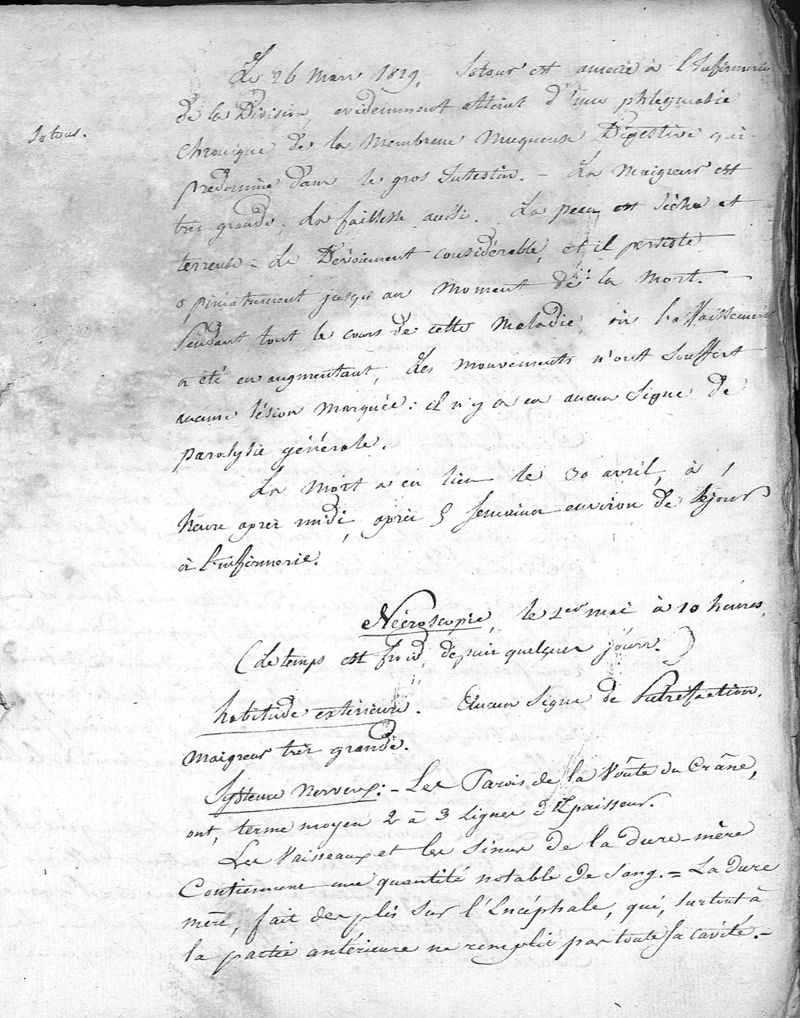 Le 26 mars 1829, Sotour est amené à l'Infirmerie
de la Division, évidemment atteint d'une phlegmasie
Sotour.
chronique de la Membrane Muqueuse Digestive qui
prédomine dans le gros Intestin. - La Maigreur est
très grande, La faiblesse aussi. La peau est sèche et
terreuse - Le Dévoiement considérable, et il persiste
opiniatrement jusqu'au moment de la mort.
Pendant tout le cours de cette Maladie, où l'affaissement
a été en augmentant, Les mouvements n'ont souffert
aucune lésion marquée : il n'y a eu aucun signe de
paralysie générale.
La mort a eu lieu le 30 avril, à 1
heure après midi, après 5 Semaines environ de Séjour
à l'infirmerie.
Nécroscopie, le 1er mai à 10 heures,
(Le temps est froid, depuis quelques jours.)
habitude extérieure. Aucun Signe de Putréfaction.
Maigreur très grande.
Système Nerveux : - Les Parois de la Voûte du Crâne,
ont, terme moyen 2 à 3 Lignes d'Epaisseur.
Les Vaisseaux et les Sinus de la dure-mère
Contiennent une quantité notable de Sang. = La dure
mère, fait des plis sur l'Encéphale, qui, surtout à
la partie antérieure ne remplit pas toute sa cavité. -